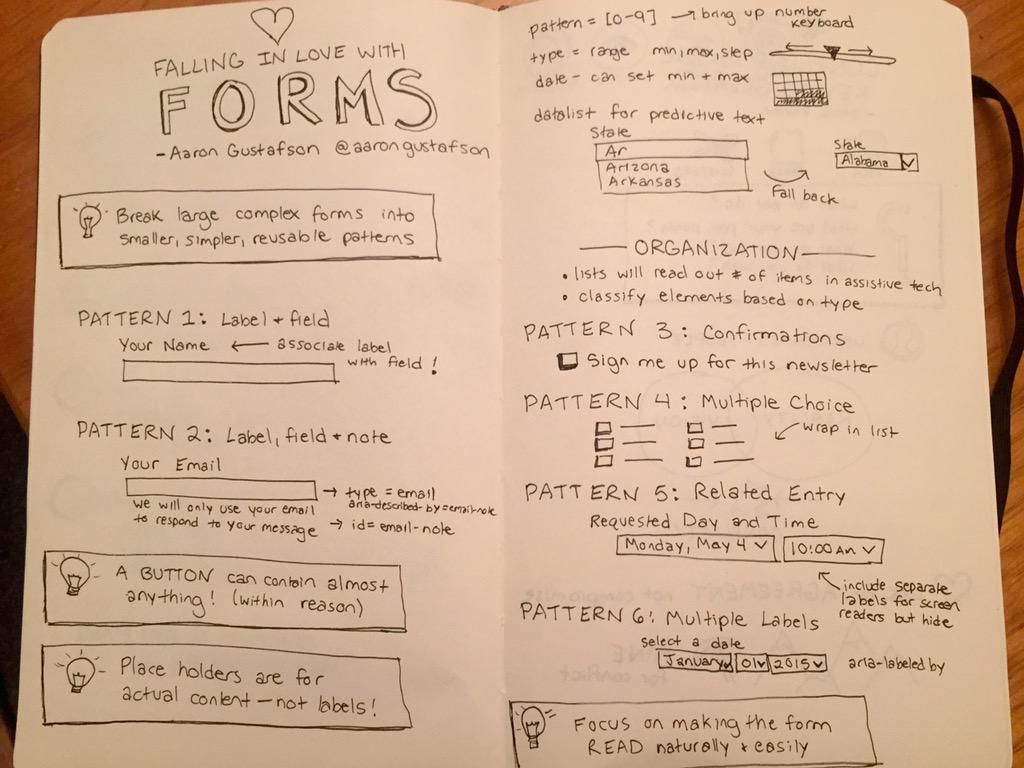 FALLING IN LOVE WITH
FORMS
- Aaron Gustafson @aarongustafson
Break large complex forms into
smaller, simpler, reusable patterns
PATTERN 1: Label + field
Your Name ← associate label
with field!
PATTERN 2: Label, field + note
Your Email
→ type = email
aria-described-by=email-note
we will only use your email
to respond to your message → id= email-note
A BUTTON can contain almost
anything! (within reason)
Place holders are for
actual content — not labels!
pattern = [0-9] → bring up number
keyboard
type = range min, max, step
date - can set min + max
datalist for predictive text
State
Ar
Arizona
Arkansas
Fall back
State
Alabama
ORGANIZATION
• lists will read out # of items in assistive tech
• classify elements based on type
PATTERN 3: Confirmations
Sign me up for this newsletter
PATTERN 4: Multiple Choice
wrap in list
PATTERN 5: Related Entry
Requested Day and Time
Monday, May 4 10:00 AM
include separate
labels for screen
readers but hide
PATTERN 6: Multiple Labels
select a date
January 01 2015 aria-labeled by
FOCUS on making the form
READ naturally + easily